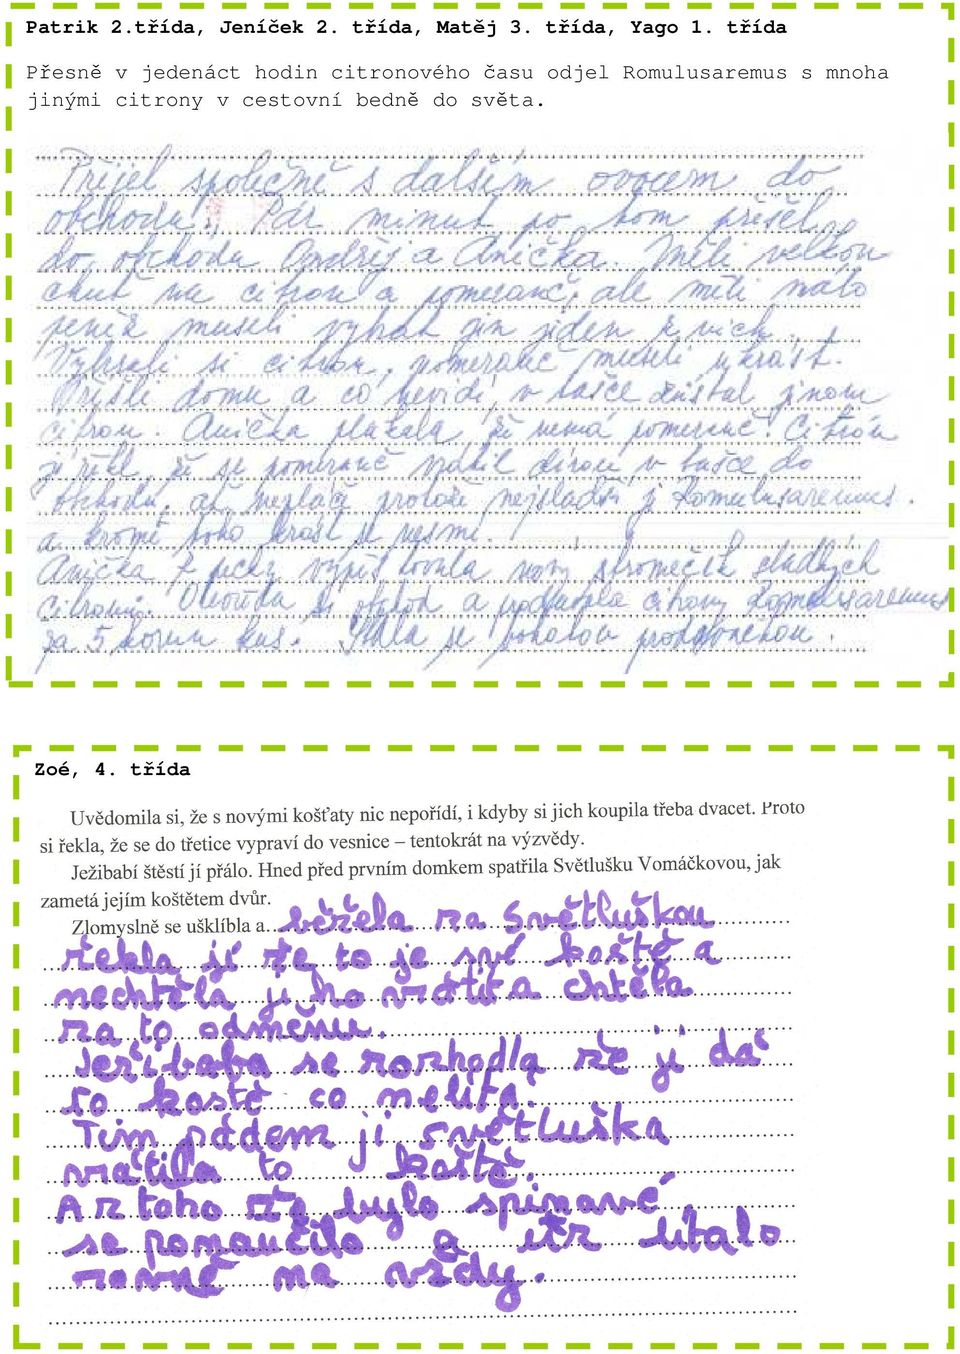 Patrik 2.třída, Jeníček 2. třída, Matěj 3. třída, Yago 1. třída
Přesně v jedenáct hodin citronového času odjel Romulusaremus s mnoha
jinými citrony v cestovní bedně do světa.
Přijel společně s dalším ovocem do
obchodu. Pár minut po tom přišel
do obchodu Ondřej a Anička. Měli velkou
chuť na citron a pomeranč, ale měli málo
peněz museli vybrat jen jeden z nich.
Vybrali si citron, pomeranč museli ukrást.
Přišli domu a co nevidí, v tašce zůstal jenom
citron. Anička plakala, že nemá pomeranč. Citrón
jí řekl, že se pomeranč vrátil dírou v tašce do
obchodu, ať nepláče protože nejsladší je Romulusaremus.
a kromě toho krást se nesmí.
Anička z pecky vypěstovala nový stromeček sladkých
citronů. Otevřela si obchod a prodávala citrony Romulusaremus
za 5 korun kus. Stala se bohatou prodavačkou.
Zoé, 4. třída
Uvědomila si, že s novými košťaty nic nepořídí, i kdyby si jich koupila třeba dvacet. Proto
si řekla, že se do třetice vypraví do vesnice – tentokrát na výzvědy.
Ježibabí štěstí jí přálo. Hned před prvním domkem spatřila Světlušku Vomáčkovou, jak
zametá jejím koštětem dvůr.
Zlomyslně se ušklíbla a běžela za Světluškou
řekla jí že to je své koště a
nechtěla ji ho vrátit a chtěla
za to odměnu.
Ježibaba se rozhodla že ji dá
to kostě co melita.
Tím pádem ji světluška
vrátila to koště.
A z toho že bylo spinavé
se pomaučilo a už lítalo
rovně na vždy.